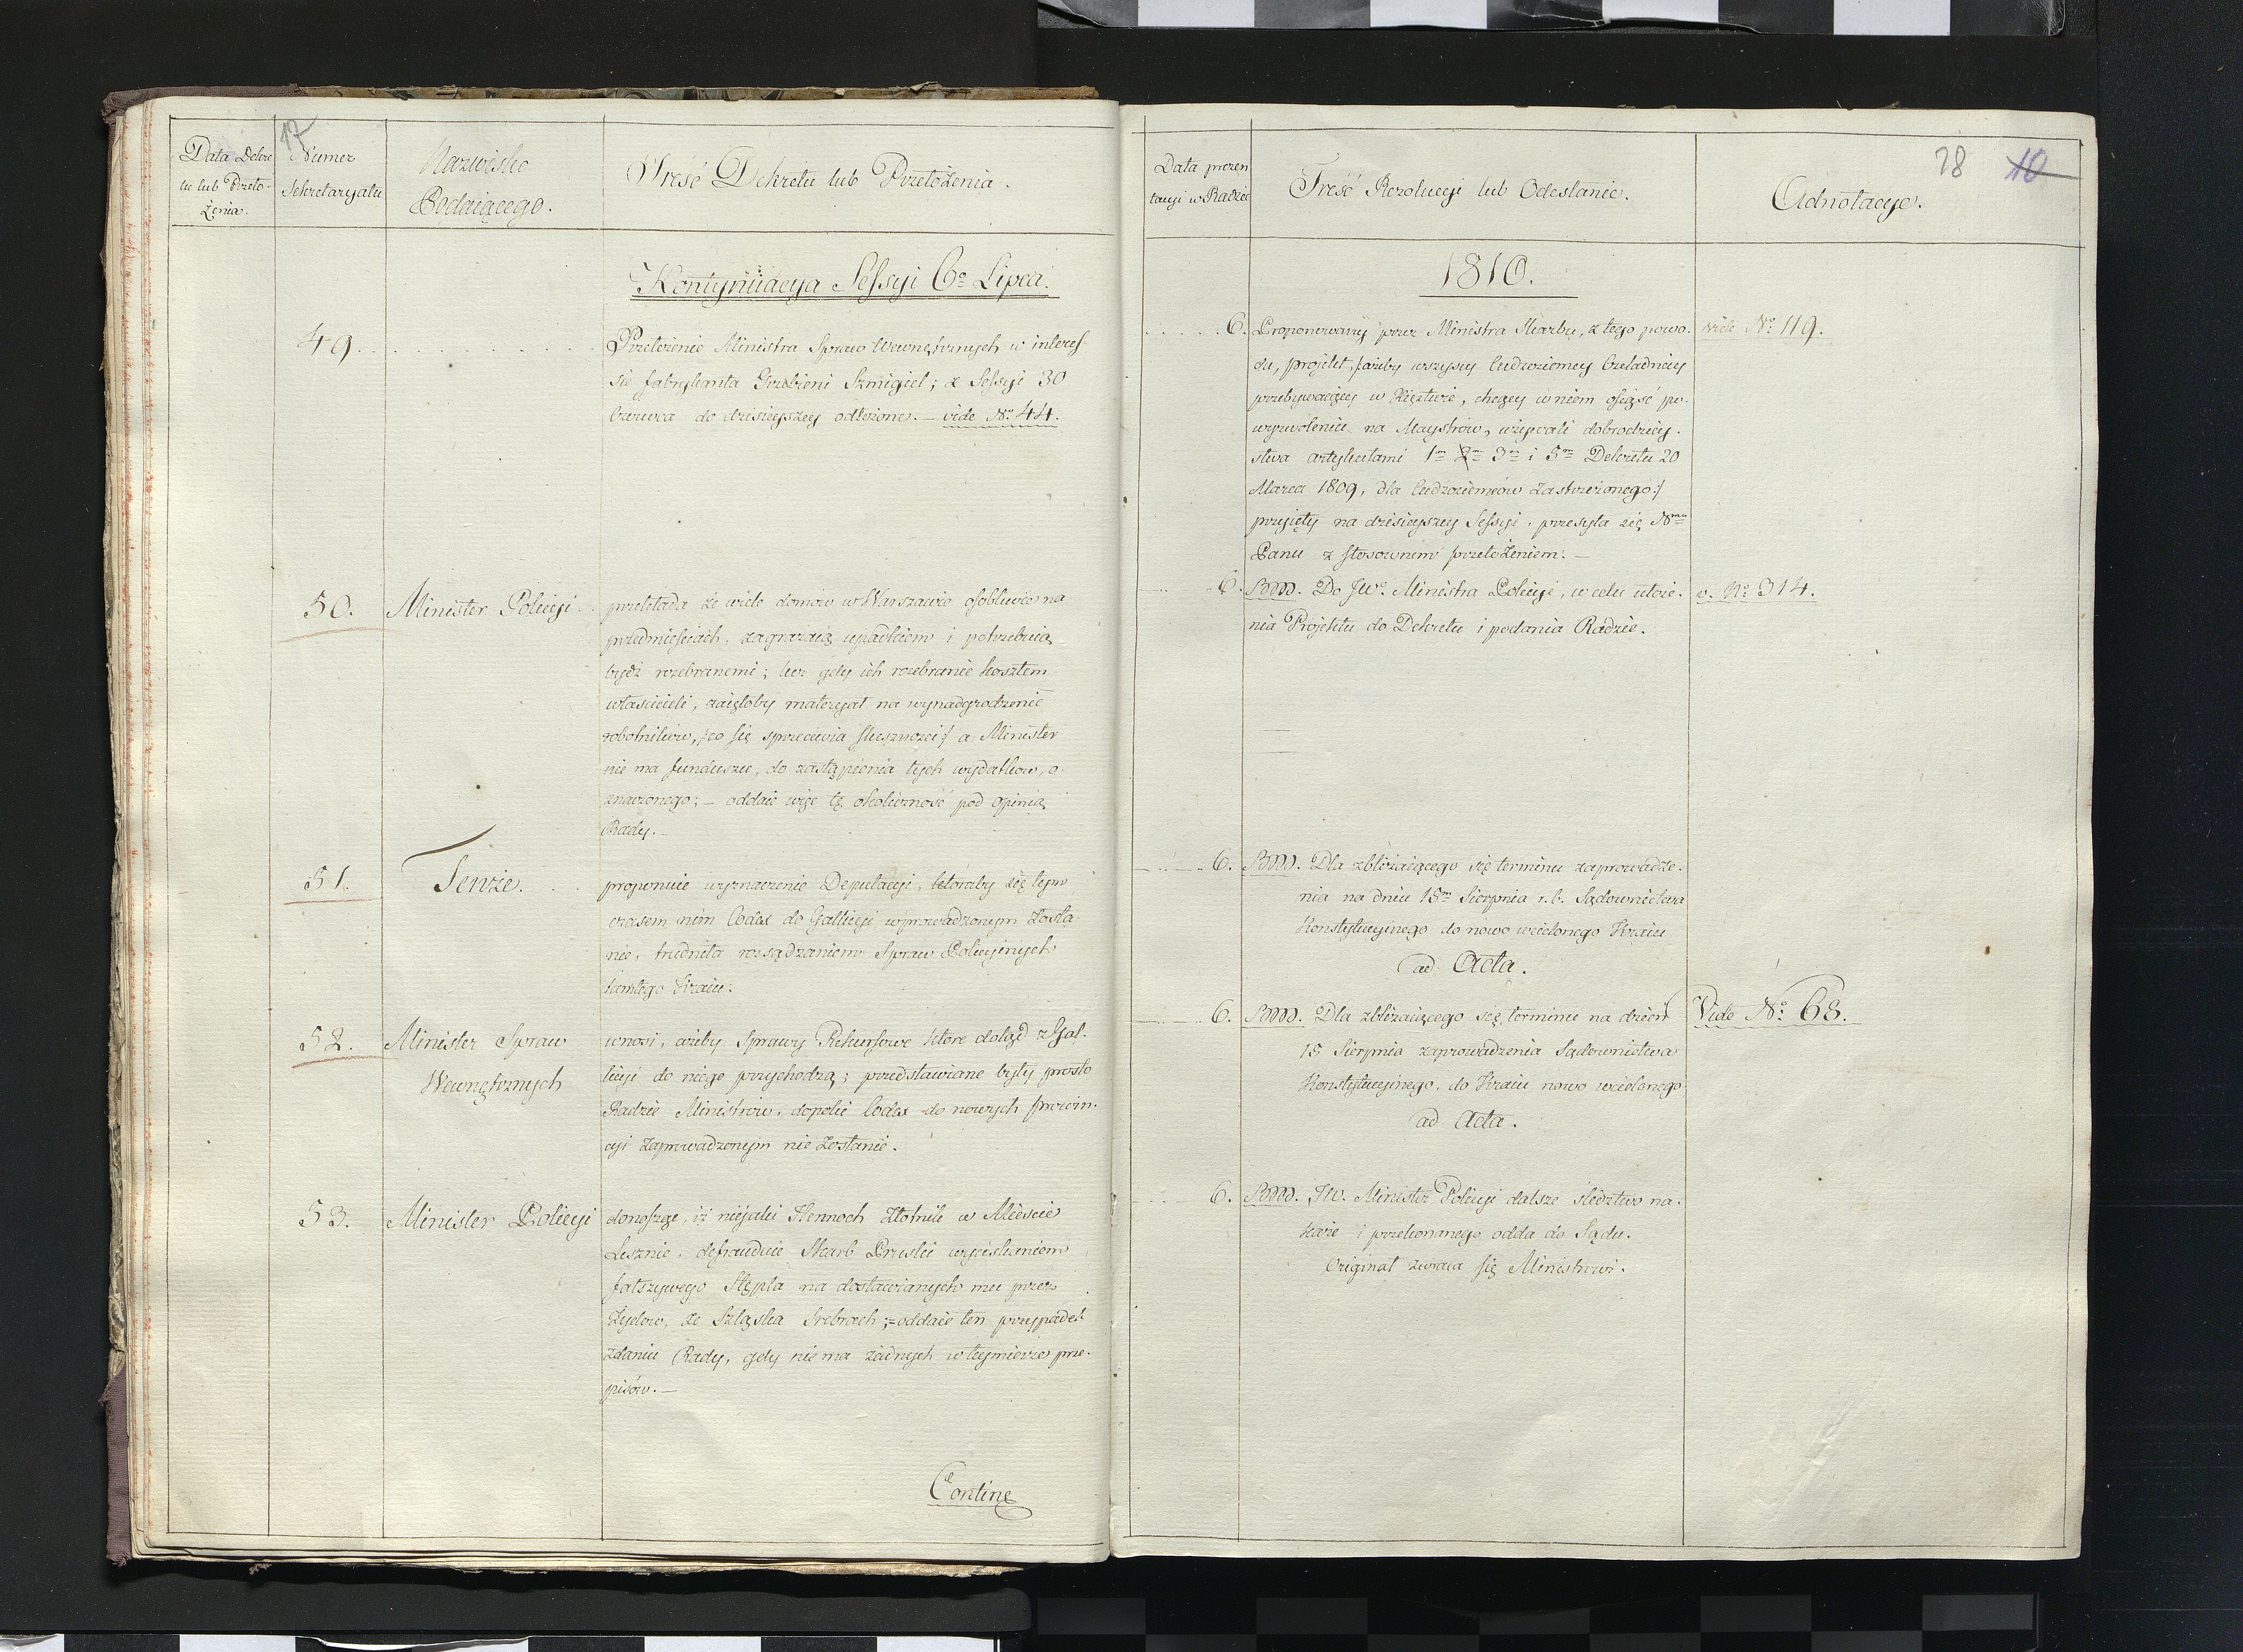 17
Data Dekre
tu lub Przeło-
żenia.
Numer
Sekretaryatu
Nazwisko
Podaiącego.
Treść Dekretu lub Przełożenia.
Kontynuacya Sessyi 6º Lipca.
49.
Przełożenie Ministra Spraw Wewnętrznych w interes
sie fabrykanta Grzebieni Szmigiel; z Sessyi 30
Czerwca do dzisieyszey odłożone. – vide Nº 44.
50.
Minister Policyi
przekłada że wiele domów w Warszawie osobliwie na
przedmieściach, zagrażaią upadkiem i potrzebuią
bydź rozebranemi; lecz gdy ich rozebranie kosztem
właścicieli, zaięłoby materyał na wynadgrodzenie
robotników, /:co się sprzeciwia słuszności:/ a Minister
nie ma funduszu, do zastąpienia tych wydatków, o-
znaczonego; – oddaie więc tę okoliczność pod opinią
Rady. –
51.
Tenże.
proponuie wyznaczenie Deputacyi, któraby się tym
czasem nim Codex do Gallicyi wprowadzonym zosta-
nie, trudniła rozsądzaniem Spraw Policyinych
tamtego Kraiu.
52.
Minister Spraw
Wewnętrznych
wnosi, ażeby Sprawy Rekursowe które dotąd z Gal-
licyi do niego przychodzą; przedstawiane były prosto
Radzie Ministrów, dopóki Codex do nowych prowin-
cyi zaprowadzonym nie zostanie.
53.
Minister Policyi
donosząc, iż nieiaki Hennoch Złotnik w Mieście
Lesznie, defrauduie Skarb Pruski wyciskaniem
fałszywego Stępla na dostawianych mu przez
Żydów, ze Szląska Srebrach; – oddaie ten przypadek
zdaniu Rady, gdy nie ma żadnych w teymierze prze-
pisów. –
Contine
Data prezen
tacyi w Radzie
Treść Rezolucyi lub Odesłanie.
28 10
Adnotacye.
1810.
6.
Proponowany przez Ministra Skarbu, z tego powo-
du, projekt, /:ażeby wszyscy Cudzoziemcy Czeladnicy
przebywaiący w Xięztwie, chcący w niem osiąść po
wyzwoleniu na Maystrów, używali dobrodziey-
stwa artykułami 1m 2m 3m i 5m Dekretu 20
Marca 1809, dla Cudzoziemców zastrzeżonego:/
przyięty na dzisieyszey Sessyi, przesyła się Nmu
Panu z stosownem przełożeniem. –
vide Nº 119.
6.
Do JWº Ministra Policyi, w celu ułoże-
nia Projektu do Dekretu i podania Radzie.
v. Nº 314.
6.
Dla zbliżaiącego się terminu zaprowadze-
nia na dniu 15m Sierpnia r. b. Sądownictwa
Konstytucyinego do nowo wcielonego Kraiu
ad Acta.
6.
Dla zbliżaiącego się terminu na dzień
15 Sierpnia zaprowadzenia Sądownictwa
Konstytucyinego, do Kraiu nowo wcielonego
ad Acta.
Vide Nº 68.
6.
JW. Minister Policyi dalsze śledztwo na-
każe i przekonanego odda do Sądu.
Originał zwraca się Ministrowi.